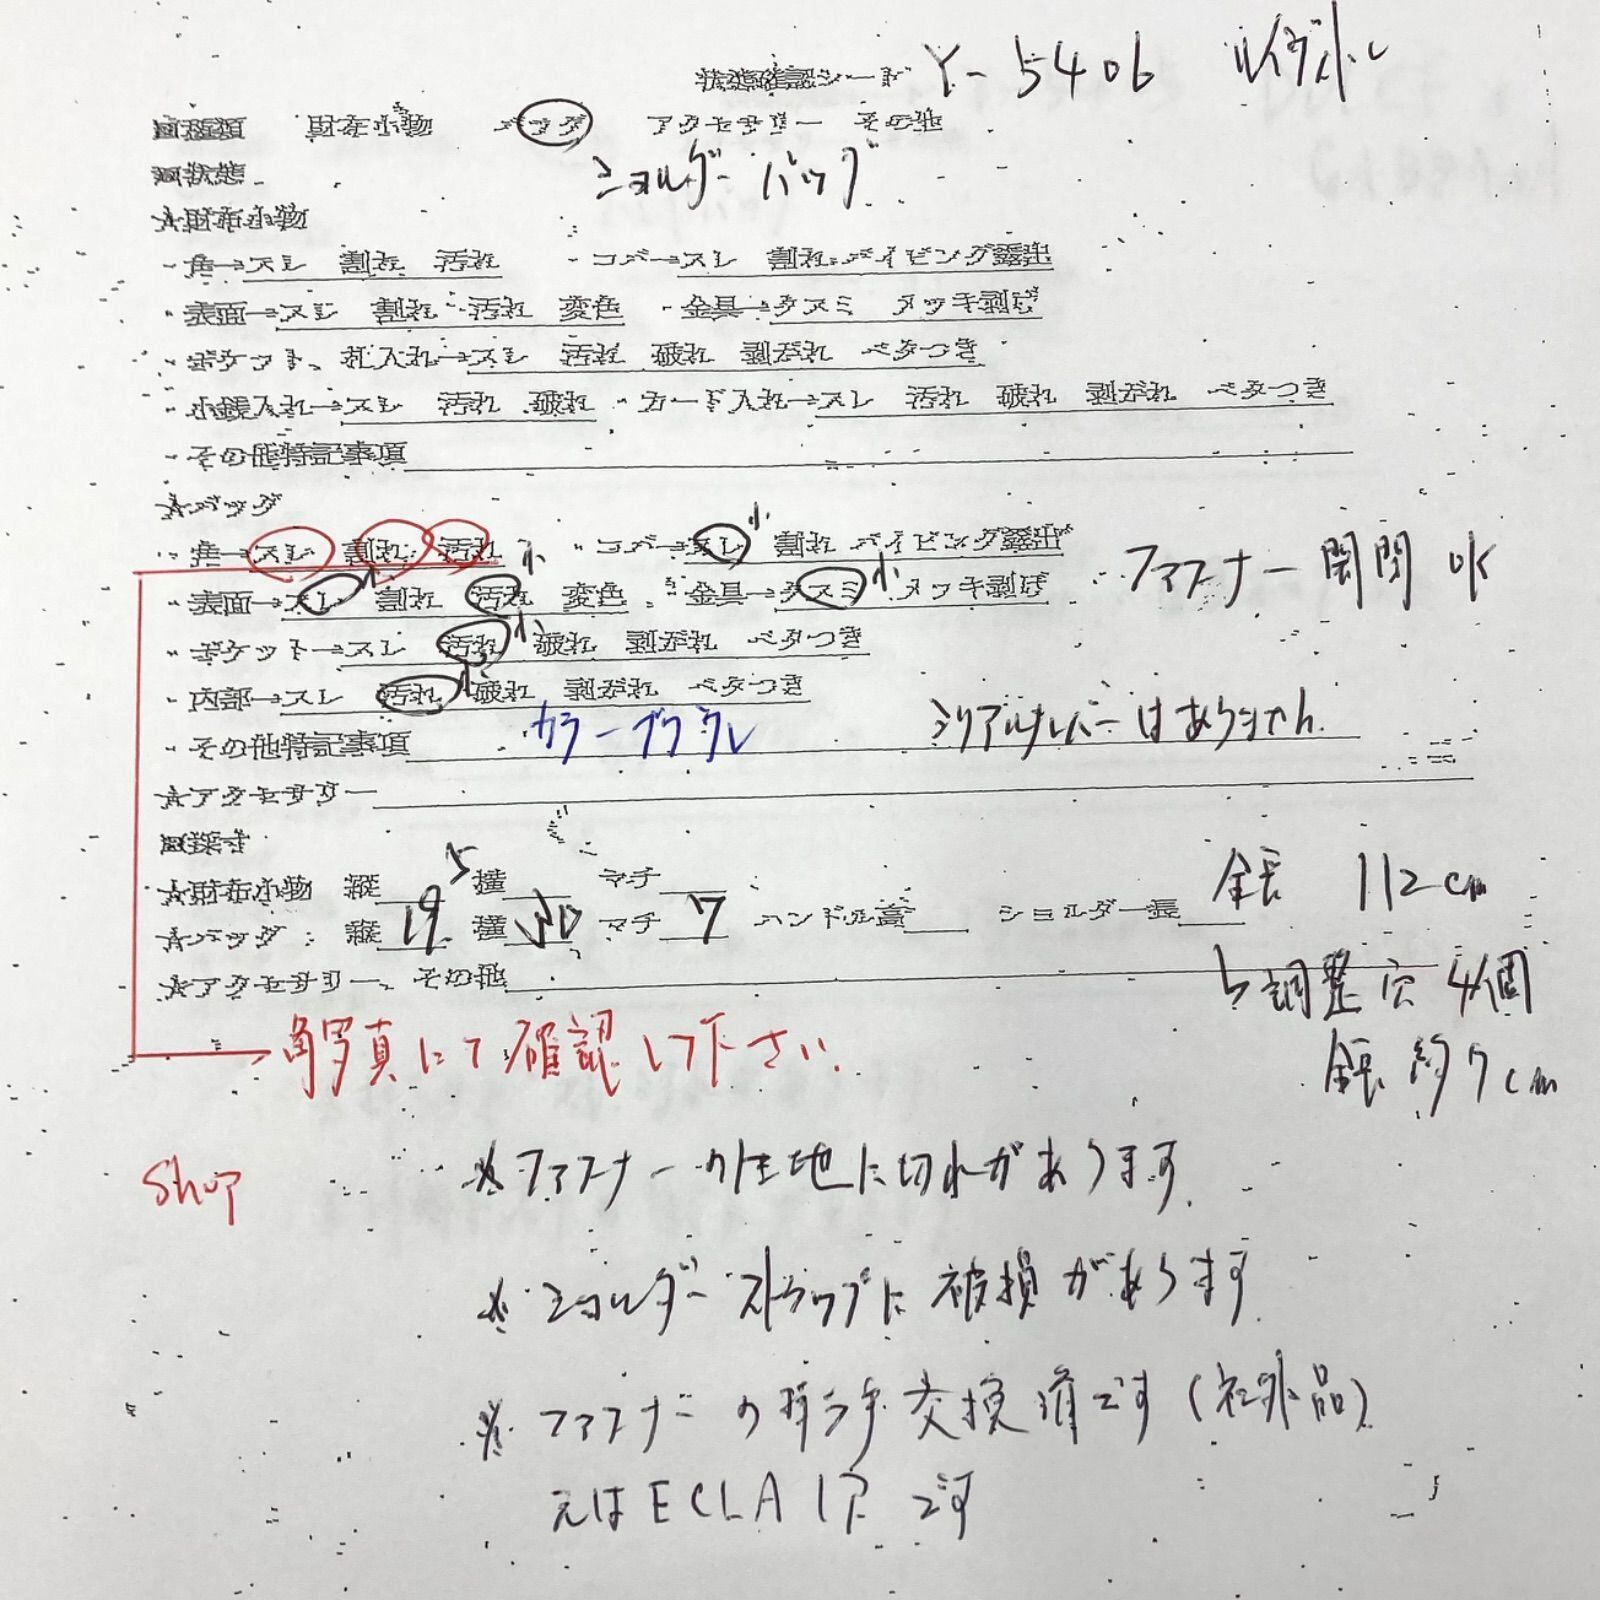 状態確認シート Y-5406 ルイヴィトン
□種類 財布小物 バッグ アクセサリー その他
ショルダーバッグ
□状態
★財布小物
・角→スレ 割れ 汚れ ・コバ→スレ 割れ パイピング露出
・表面→スレ 割れ 汚れ 変色 ・金具→クスミ メッキ剥げ
・ポケット、札入れ→スレ 汚れ 破れ 剥がれ ベタつき
・小銭入れ→スレ 汚れ 破れ ・カード入れ→スレ 汚れ 破れ 剥がれ ベタつき
・その他特記事項
★バッグ
・角→スレ 割れ 汚れ ・コバ→スレ小 割れ パイピング露出
・表面→スレ小 割れ 汚れ小 変色 ・金具→クスミ小 メッキ剥げ ・ファスナー開閉 OK
・ポケット→スレ 汚れ小 破れ 剥がれ ベタつき
・内部→スレ 汚れ小 破れ 剥がれ ベタつき
・その他特記事項 カラーブラウン シリアルナンバーはありません
★アクセサリー
□採寸
★財布小物 縦 横 マチ
★バッグ:縦19.5 横30 マチ7 ハンドル高 ショルダー長 全長 112cm
★アクセサリー、その他
↳調整穴 4個
全長 約7cm
角写真にて確認して下さい
Shop
※ファスナーの生地に切れがあります
※ショルダーストラップに破損があります
※ファスナーの引手交換済です(社外品)
元はECLAIRです